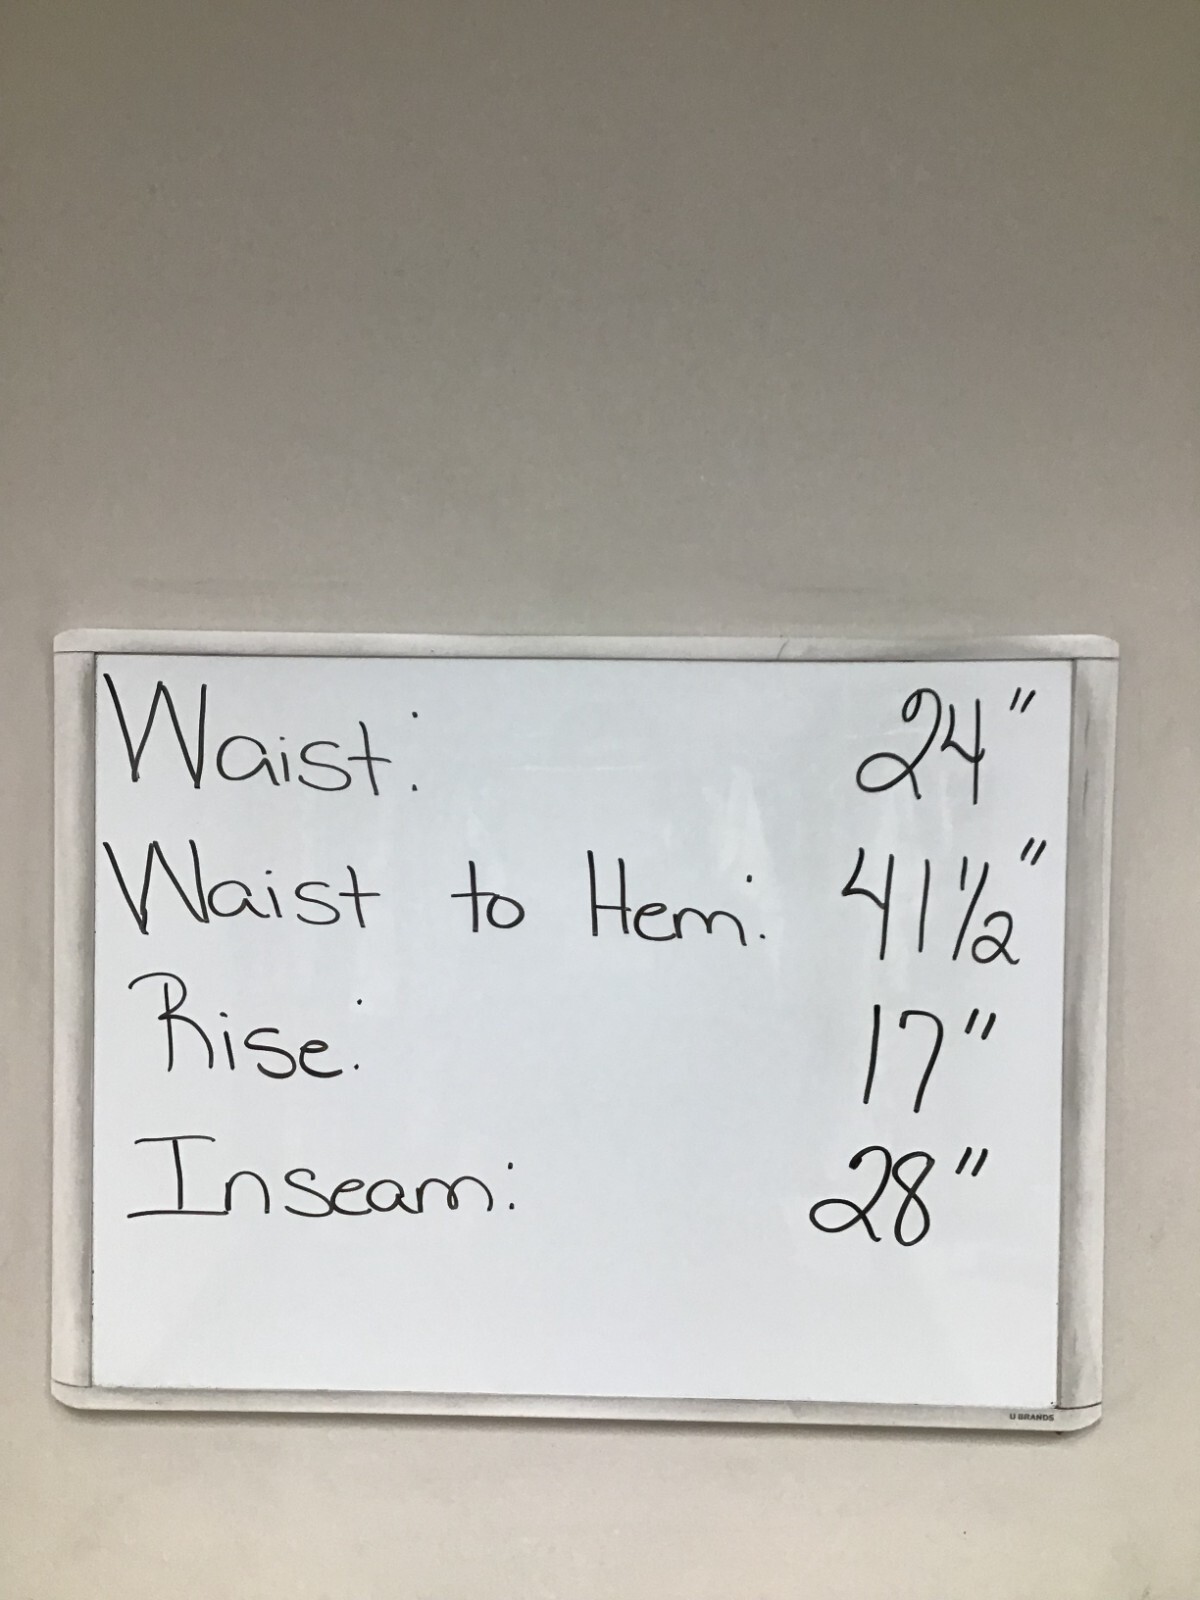 Waist: 24"
Waist to Hem: 41 1/2"
Rise: 17"
Inseam: 28"
U BRANDS